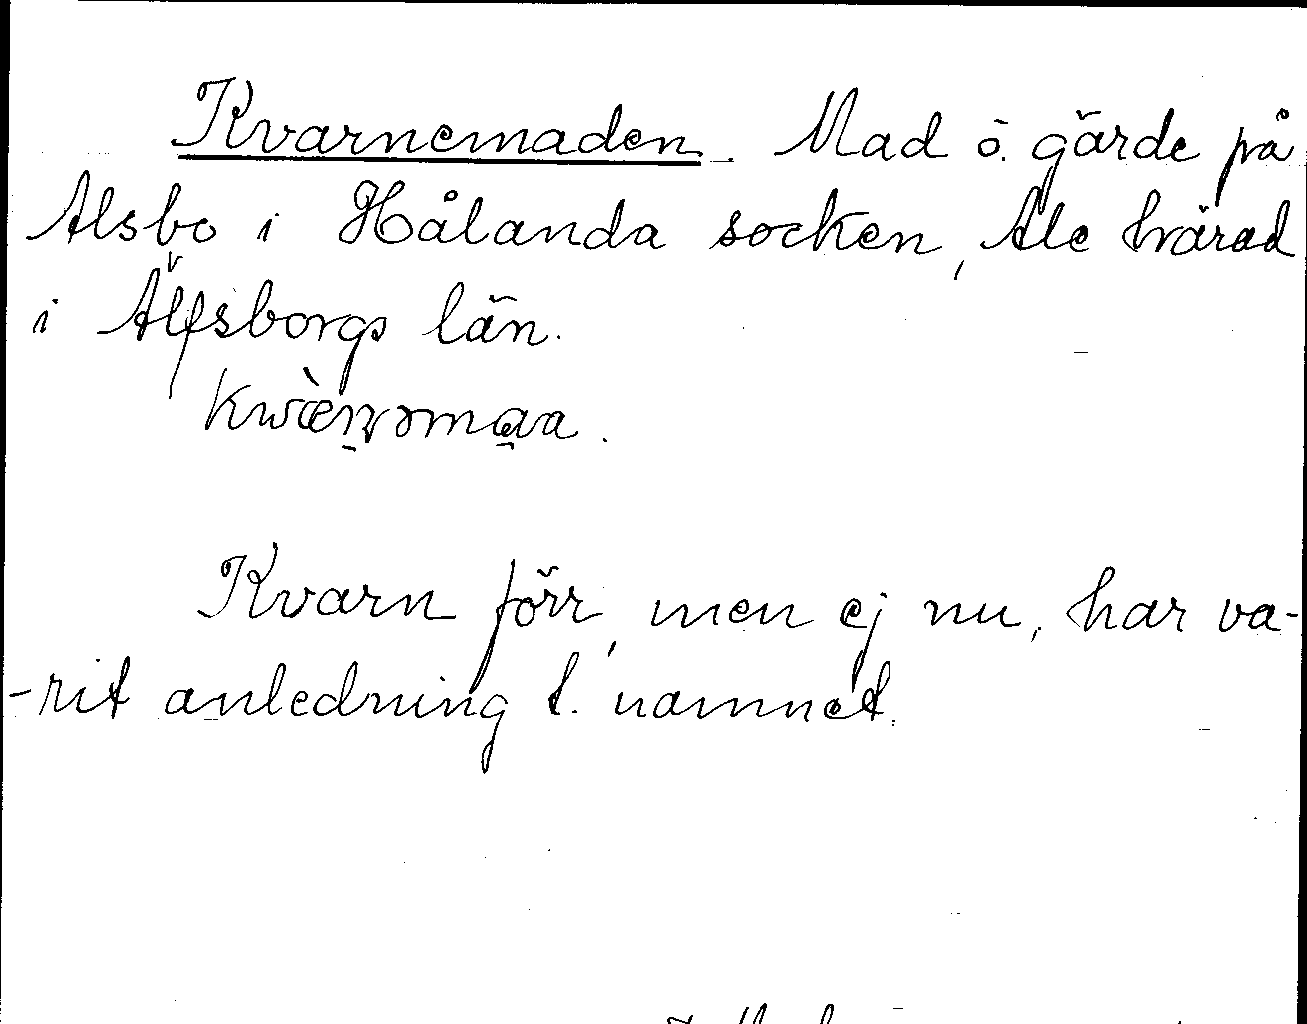 Kvarnemaden. Mad o. gärde på
Alsbo i Hålanda socken, Ale härad
i Älfsborgs län.
Kvarn förr, men ej nu, har va-
-rit anledning t. namnet.